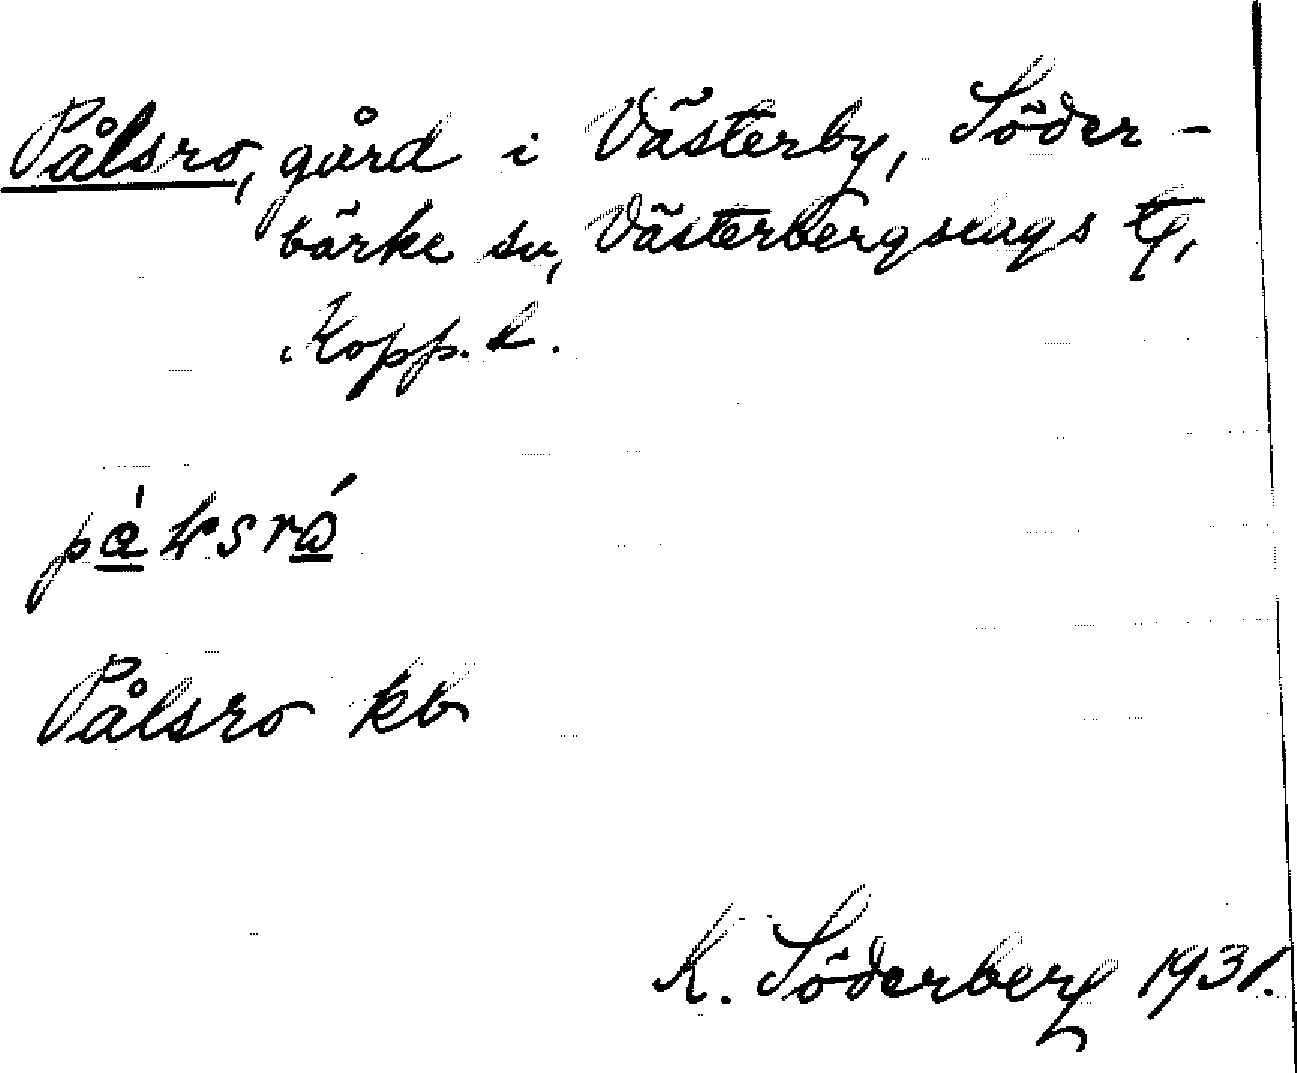 Pålsro, gård i Västerby, Söder-
bärke sn, Västerbergslags tg,
Kopp. l.
Pålsro kb
K. Söderberg 1931.